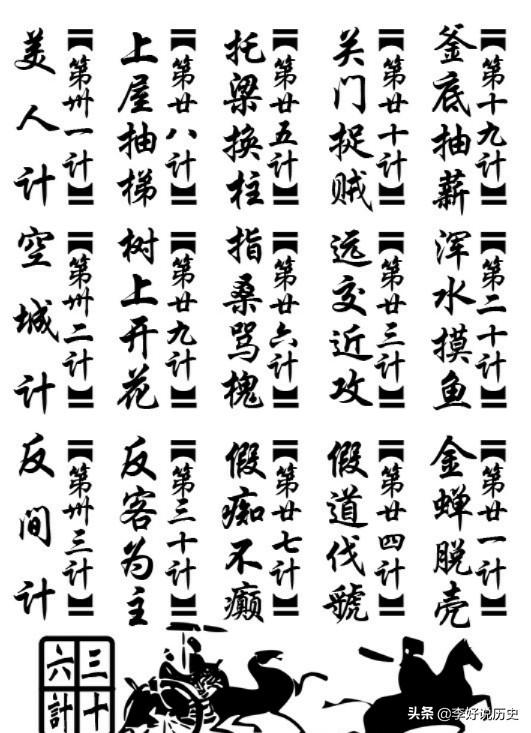 【第十九计】
釜底抽薪
【第二十计】
浑水摸鱼
【第廿一计】
金蝉脱壳
【第廿十计】
关门捉贼
【第廿三计】
远交近攻
【第廿四计】
假道伐虢
【第廿五计】
托梁换柱
【第廿六计】
指桑骂槐
【第廿七计】
假痴不癫
【第廿八计】
上屋抽梯
【第廿九计】
树上开花
【第三十计】
反客为主
【第卅一计】
美人计
【第卅二计】
空城计
【第卅三计】
反间计
三十
六計
头条 @李好说历史